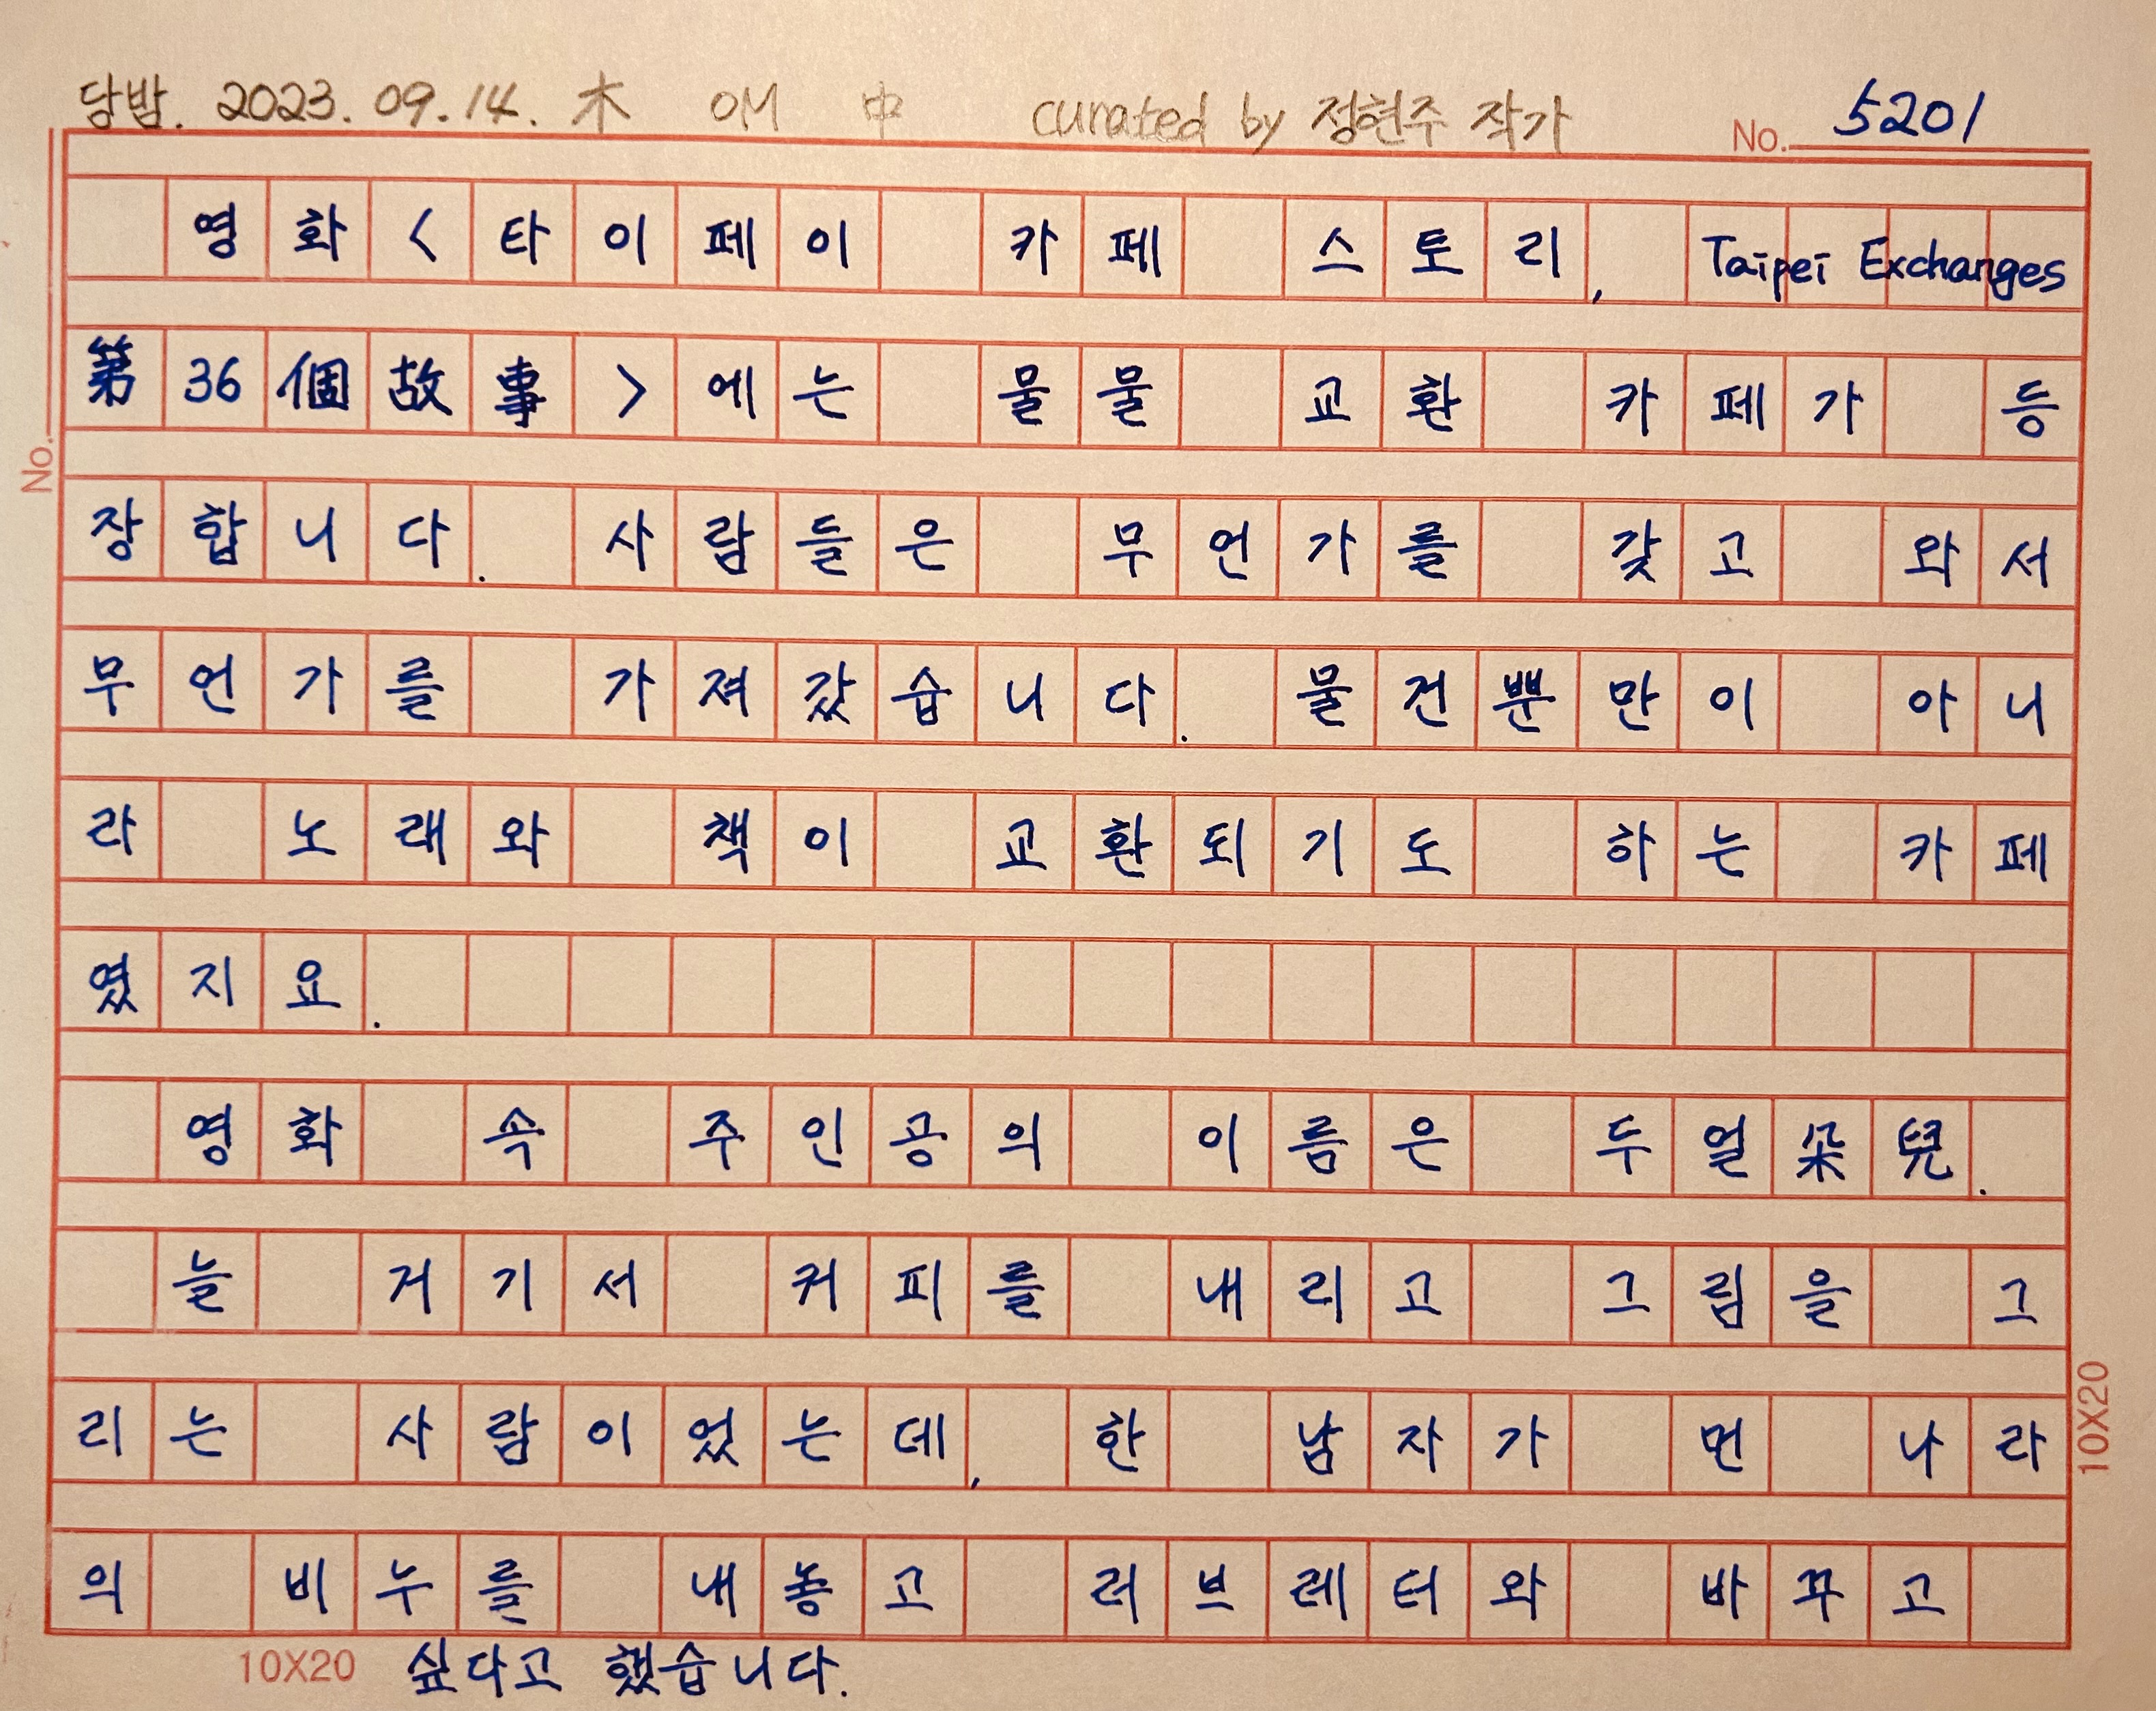 당밤. 2023. 09. 14. 木 OM 中 curated by 정현주 작가 No. 5201
영화<타이페이 카페 스토리, Taipei Exchanges
第36個故事>에는 물물 교환 카페가 등
장합니다. 사람들은 무언가를 갖고 와서
No.
무언가를 가져갔습니다. 물건뿐만이 아니
라 노래와 책이 교환되기도 하는 카페
였지요.
영화 속 주인공의 이름은 두얼朵兒.
늘 거기서 커피를 내리고 그림을 그
리는 사람이었는데, 한 남자가 먼 나라
10X20
의 비누를 내놓고 러브레터와 바꾸고
10X20 싶다고 했습니다.